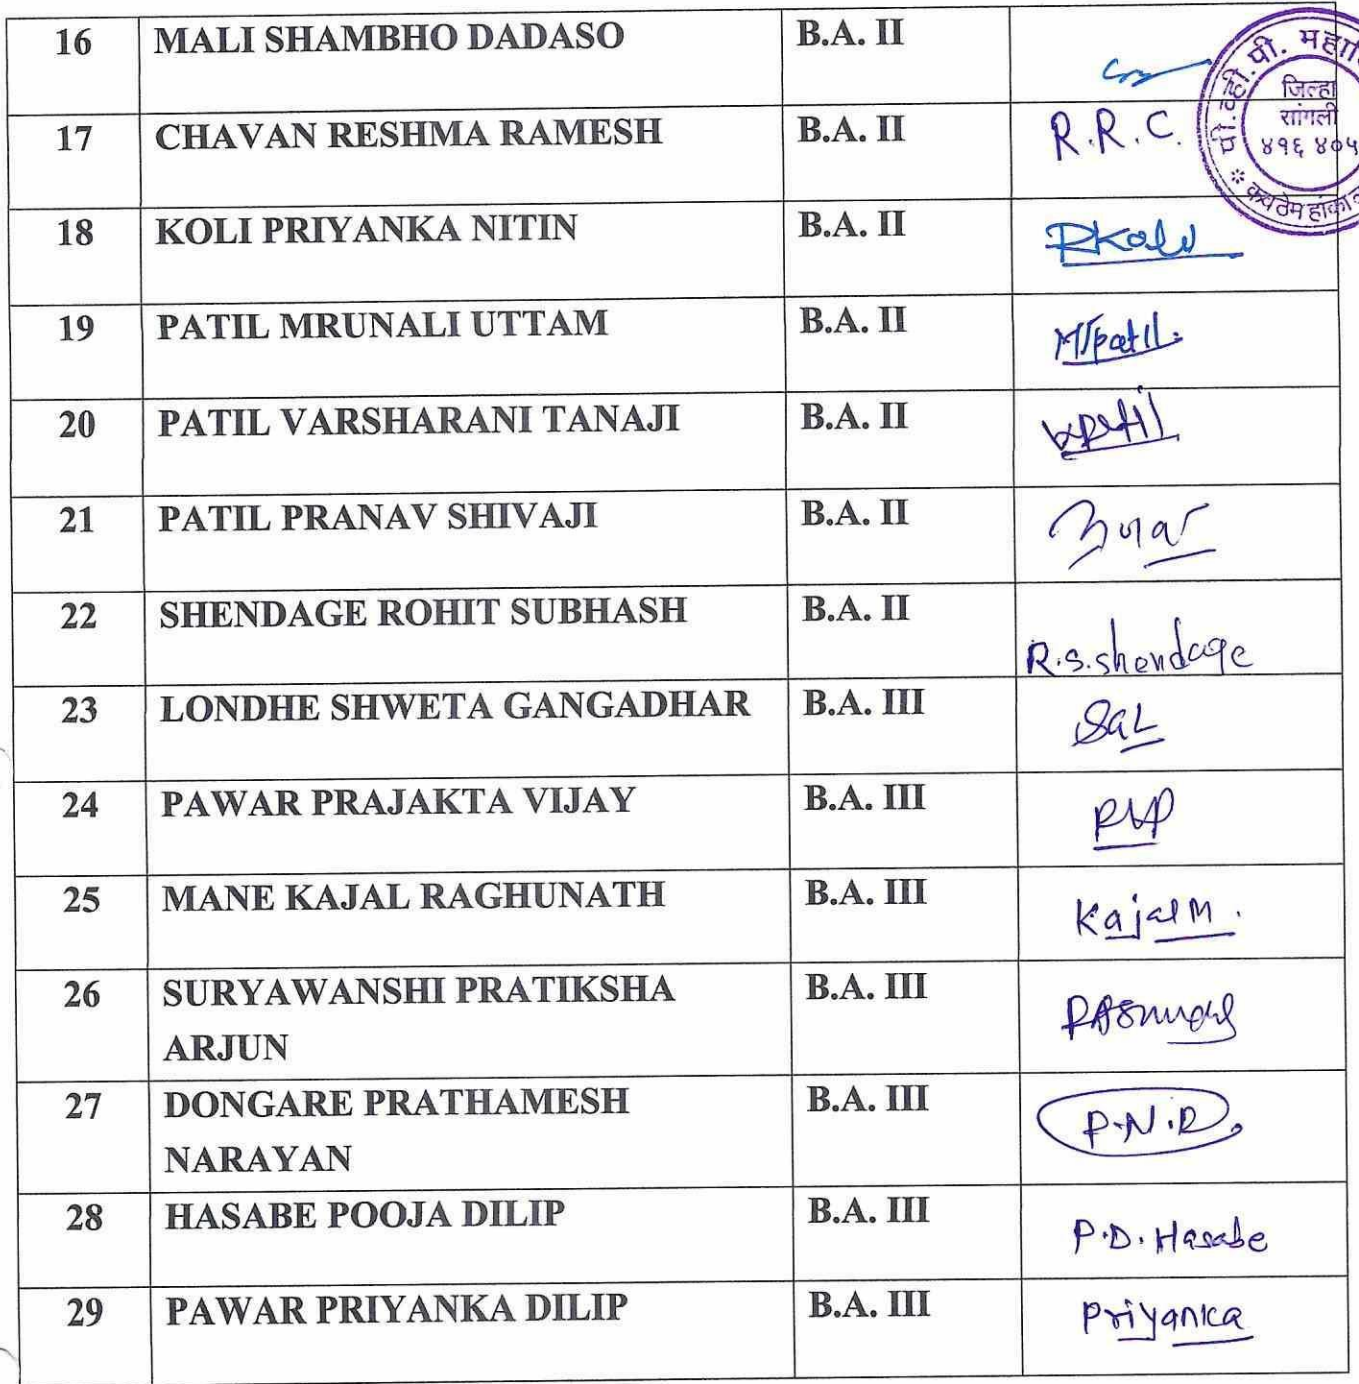 16 MALI SHAMBHO DADASO B.A. II
17 CHAVAN RESHMA RAMESH B.A. II R.R.C.
पी.व्ही.पी. महावि
जिल्हा
सांगली
४१६ ४०५
18 KOLI PRIYANKA NITIN B.A. II PKoli
19 PATIL MRUNALI UTTAM B.A. II MUpatil.
20 PATIL VARSHARANI TANAJI B.A. II
21 PATIL PRANAV SHIVAJI B.A. II
22 SHENDAGE ROHIT SUBHASH B.A. II R.S.shendage
23 LONDHE SHWETA GANGADHAR B.A. III SGL
24 PAWAR PRAJAKTA VIJAY B.A. III PVP
25 MANE KAJAL RAGHUNATH B.A. III Kajal M.
26 SURYAWANSHI PRATIKSHA B.A. III
ARJUN
27 DONGARE PRATHAMESH B.A. III P.N.D.
NARAYAN
28 HASABE POOJA DILIP B.A. III P.D. Hasabe
29 PAWAR PRIYANKA DILIP B.A. III Priyanka